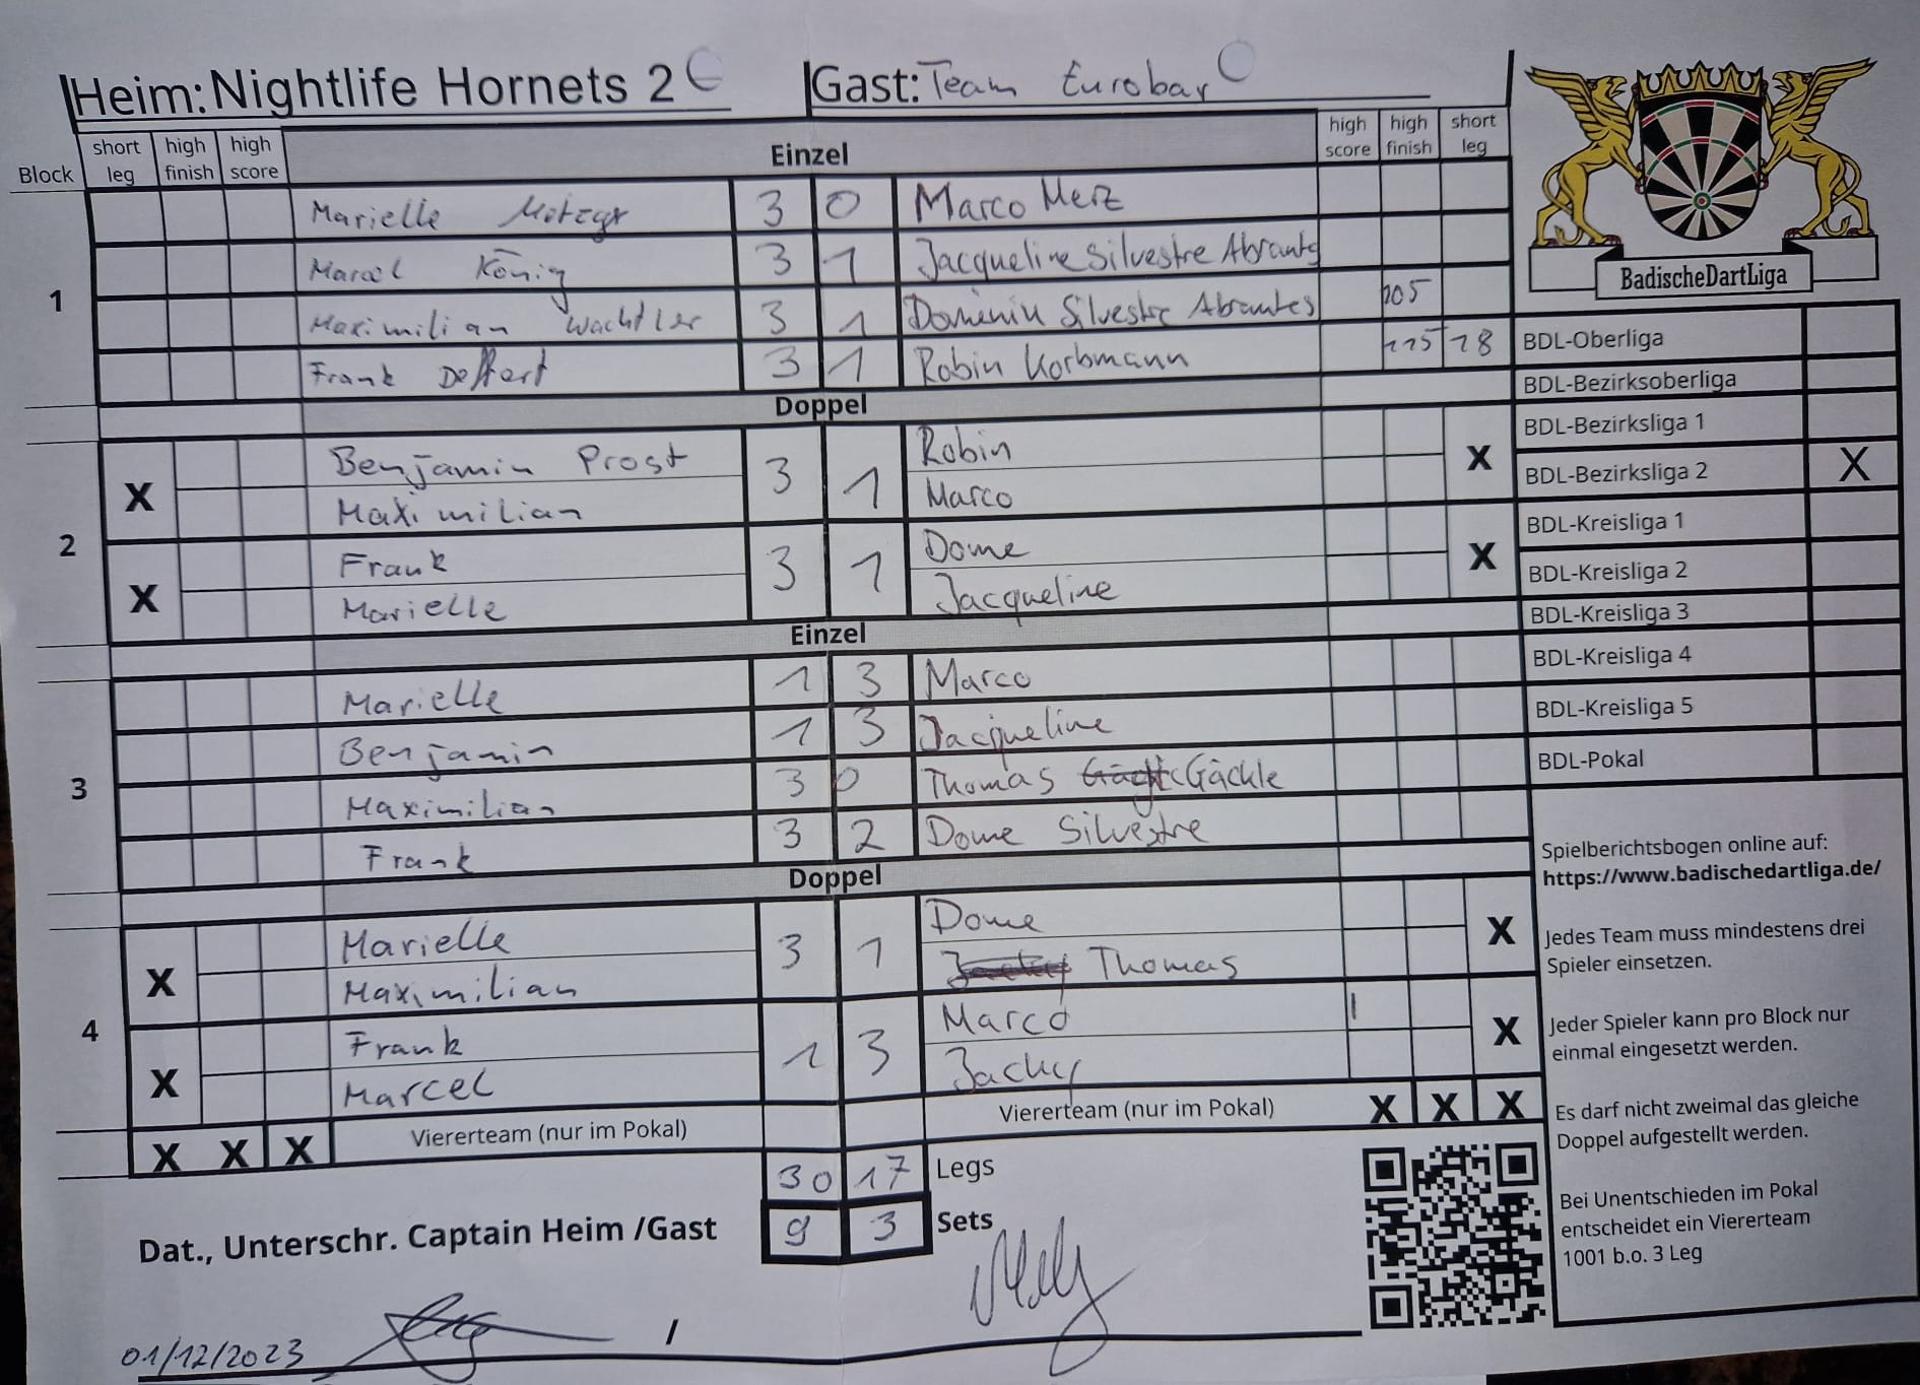 Heim: Nightlife Hornets 2 Gast: Team Eurobar
Block short leg high finish high score Einzel high score high finish short leg
1
Marielle 3 0 Marco Merz
Marcel König 3 1 Jacqueline Silvestre Abrants
Maximilian Wachtler 3 1 Dominik Silvestre Abrantes 105
Frank 3 1 Robin Korbmann 115 18
Doppel
2
X Benjamin Prost 3 1 Robin X
Maximilian Marco
X Frank 3 1 Dome X
Marielle Jacqueline
Einzel
3
Marielle 1 3 Marco
Benjamin 1 3 Jacqueline
Maximilian 3 0 Thomas Gächle
Frank 3 2 Dome Silvestre
Doppel
4
X Marielle 3 1 Dome X
Maximilian Thomas
X Frank 1 3 Marco X
Marcel Jacky
X X X Viererteam (nur im Pokal) Viererteam (nur im Pokal) X X X
30 17 Legs
9 3 Sets
Dat., Unterschr. Captain Heim /Gast
01/12/2023 /
BadischeDartLiga
BDL-Oberliga
BDL-Bezirksoberliga
BDL-Bezirksliga 1
BDL-Bezirksliga 2 X
BDL-Kreisliga 1
BDL-Kreisliga 2
BDL-Kreisliga 3
BDL-Kreisliga 4
BDL-Kreisliga 5
BDL-Pokal
Spielberichtsbogen online auf:
https://www.badischedartliga.de/
Jedes Team muss mindestens drei
Spieler einsetzen.
Jeder Spieler kann pro Block nur
einmal eingesetzt werden.
Es darf nicht zweimal das gleiche
Doppel aufgestellt werden.
Bei Unentschieden im Pokal
entscheidet ein Viererteam
1001 b.o. 3 Leg